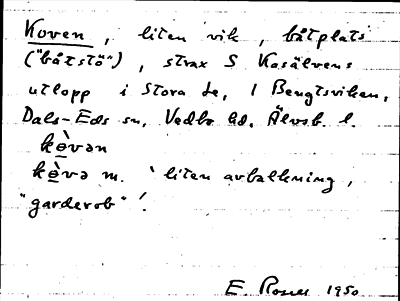 Koven, liten vik, båtplats
("båtstö"), strax S Kasälvens
utlopp i Stora Le, i Bengtsviken,
Dals-Eds sn, Vedbo hd. Älvsb. l.
kèvən
kèvə m. 'liten avbalkning,
"garderob"'.
E. Rosell 1950